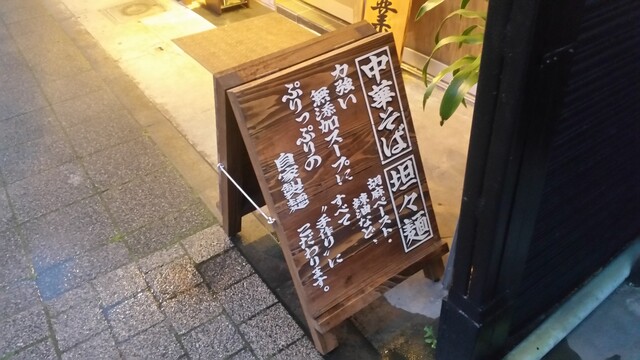 中華そば
坦々麺
力強い
無添加スープに
ぷりっぷりの
自家製麺
胡麻ペースト・
辣油など、
すべて
"手作り"に
こだわります。
業